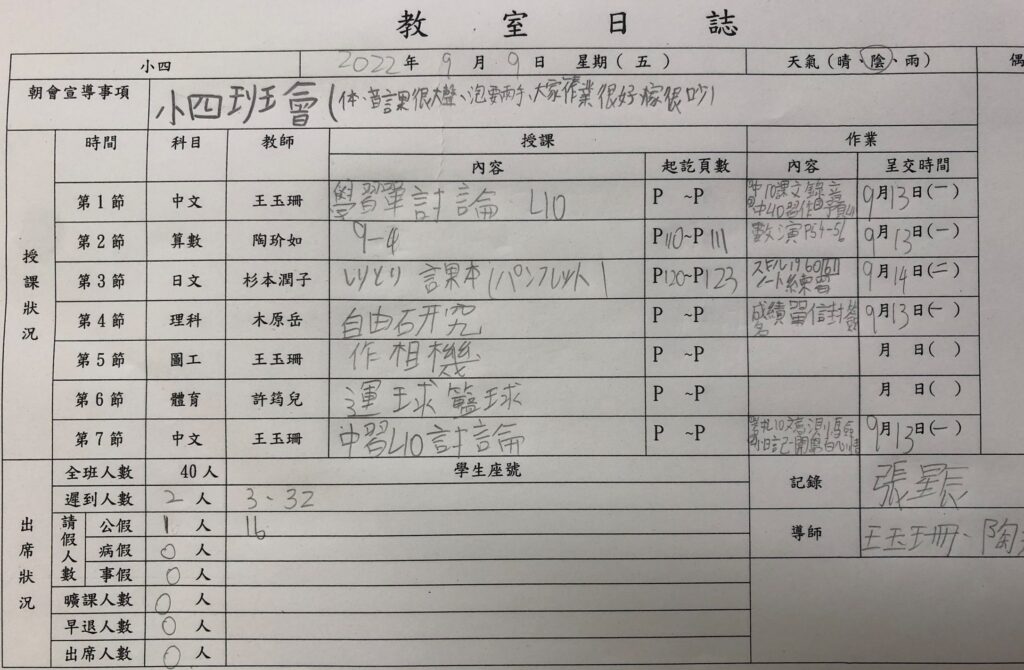 教室日誌
小四 2022年9月9日 星期(五) 天氣(晴、陰、雨) 偶
朝會宣導事項 小四班會(体、音課很大聲、泡要兩手、大家作業很好 很吵)
時間 科目 教師 授課 作業
內容 起訖頁數 內容 呈交時間
授課狀況
第1節 中文 王玉珊 學習單討論 L10 P ~P 中10課文錄音 9月13日(一)
中L10習作
第2節 算數 陶玠如 9-4 P110~P111 數演P54-56 9月13日(一)
第3節 日文 杉本潤子 しりとり 課本(パンフレット) P120~P123 スキル19 60 61 9月14日(二)
ノート練習
第4節 理科 木原岳 自由研究 P ~P 成績單信封簽名 9月13日(一)
第5節 圖工 王玉珊 作相機 P ~P 月 日( )
第6節 體育 許筠兒 運球籃球 P ~P 月 日( )
第7節 中文 王玉珊 中習L10討論 P ~P 9月13日(一)
小日記
出席狀況
全班人數 40人 學生座號
遲到人數 2人 3、32
請假人數 公假 1人 16
病假 0人
事假 0人
曠課人數 0人
早退人數 0人
出席人數 0人
記錄 張
導師 王玉珊、陶